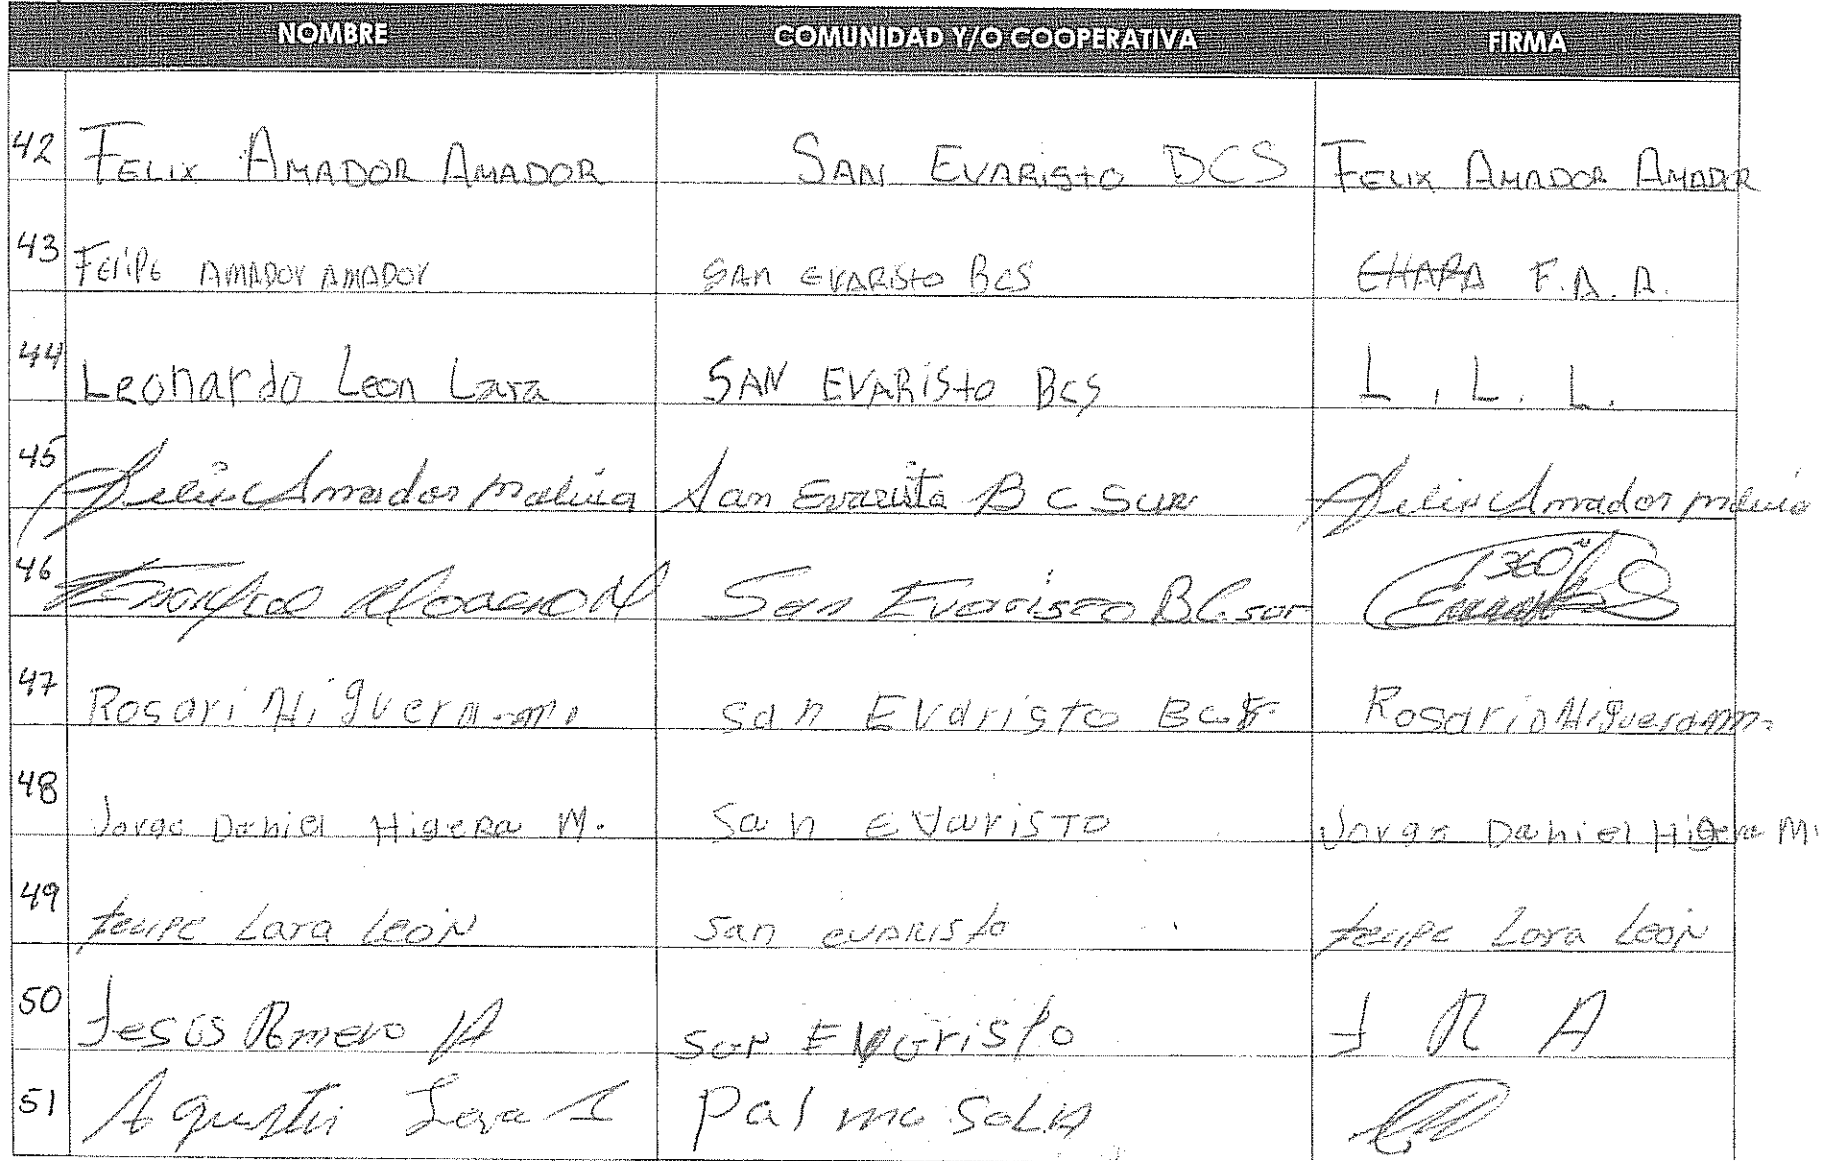 NOMBRE COMUNIDAD Y/O COOPERATIVA FIRMA
42 FELIX AMADOR AMADOR SAN EVARISTO BCS FELIX AMADOR AMADOR
43 FELIPE AMADOR AMADOR SAN EVARISTO BCS CHAPA F.A.A.
44 Leonardo Leon Lara SAN EVARISTO BCS L.L.L.
45 Felix Amador San Evaristo B C Sur Felix Amador
46 San Evaristo B.C. sur
47 Rosari Higuera m. san Evaristo Rosario Higuera m.
48 Jorge Daniel Higera M. San Evaristo Jorge Daniel Higera M.
49 felipe Lara León san evaristo felipe Lara León
50 Jesús Romero A san Evaristo J R A
51 Agustin Palma Sola